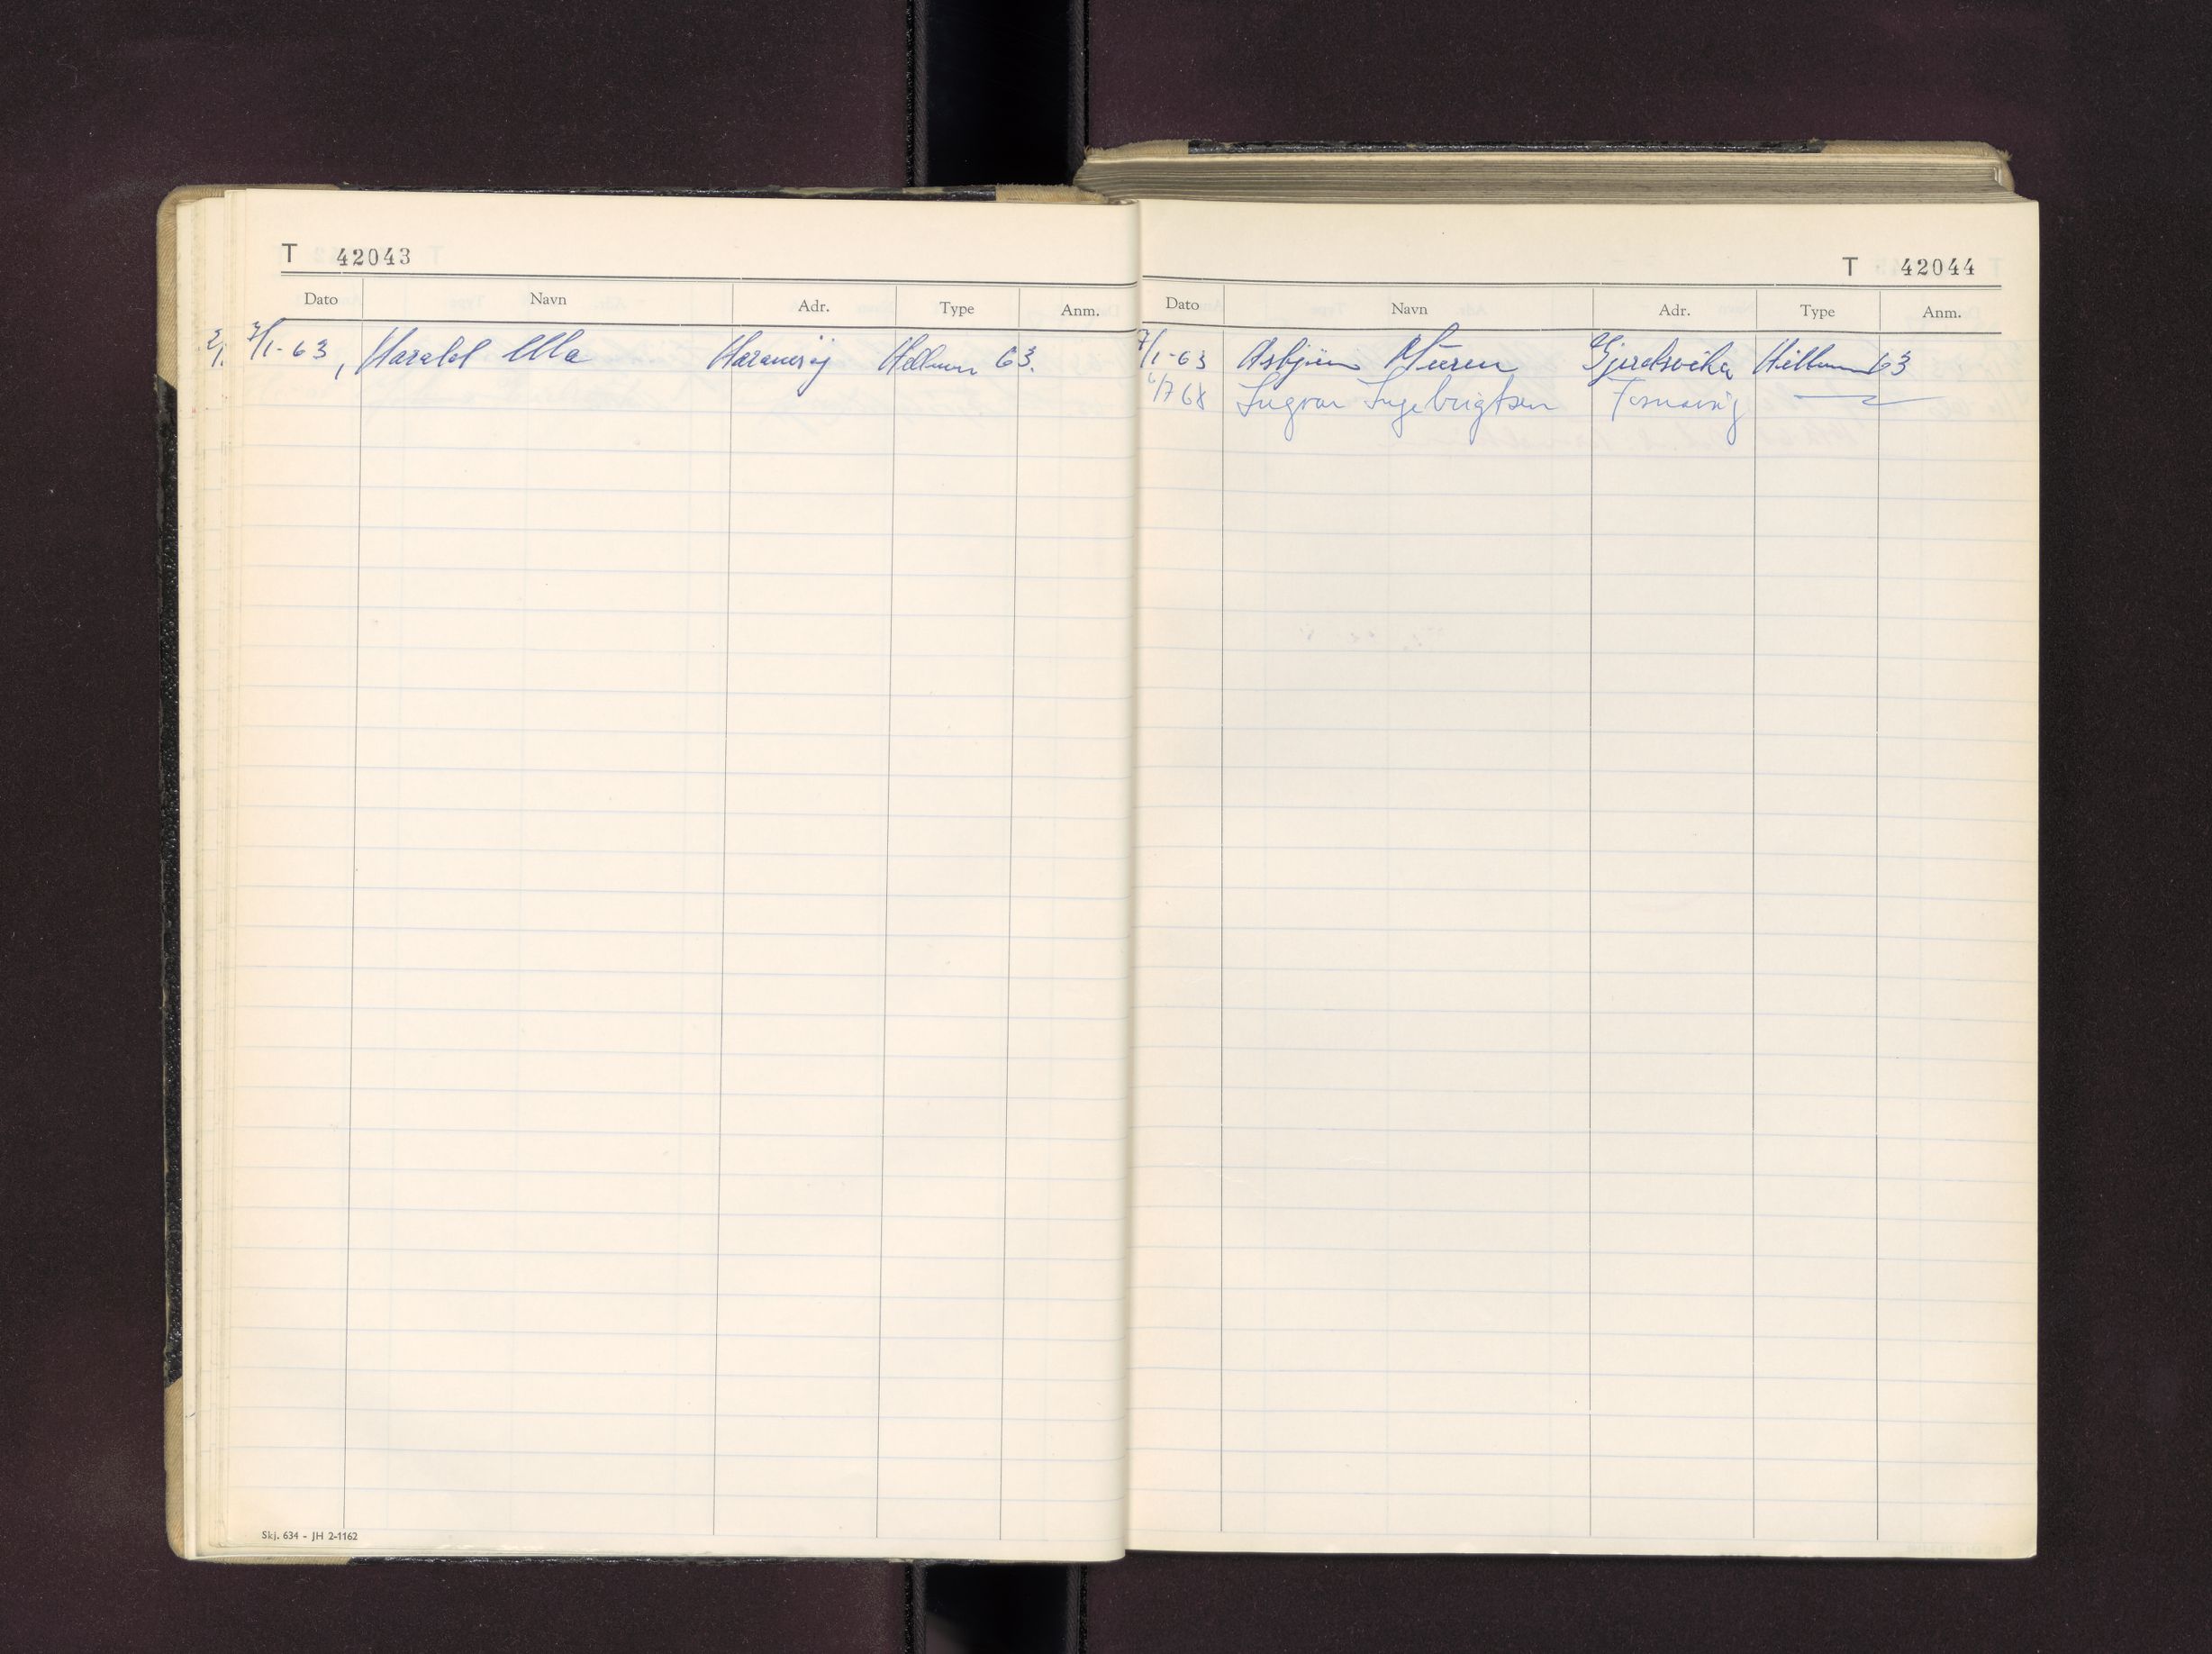 T 42043
Dato Navn Adr. Type Anm.
7/1-63, Harald Ulla Haramsøy Hillman 63.
Skj. 634 - JH 2-1162
T 42044
Dato Navn Adr. Type Anm.
7/1-63 Asbjørn Gjerdsvika Hillman 63
6/7 68 Ingvar Ingebrigtsen Fosnavåg